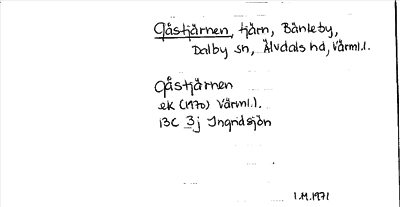 Gåstjärnen, tjärn, Bänteby,
Dalby sn, Älvdals hd, Värml.l.
Gåstjärnen
ek (1970) Värml.l.
13C 3j Ingridsjön
1.M.1971